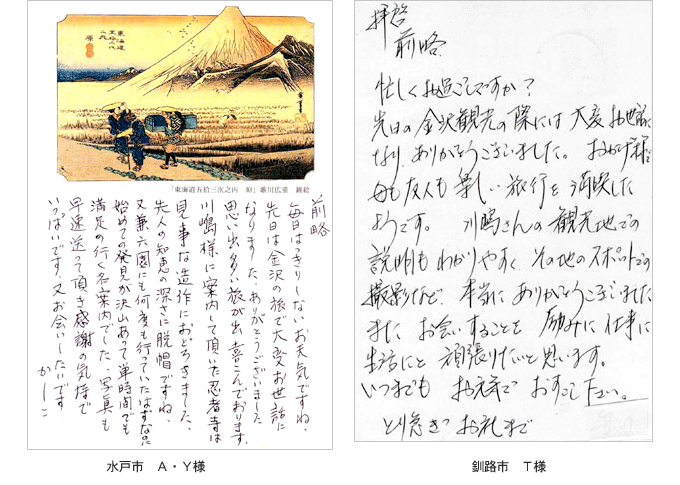 東海道
五拾三次
之内
原
「東海道五拾三次之内　原」歌川広重　錦絵
前略
毎日はっきりしないお天気ですね、
先日は金沢の旅で大変お世話に
なりました、ありがとうございました
思い出多い旅が出来喜こんでおります。
川嶋様に案内して頂いた忍者寺は
見事な造作におどろきました、
先人の知恵の深さに脱帽ですね、
又兼六園にも何度も行っていたはずなのに
始めての発見が沢山あって短時間でも
満足の行く名案内でした、写真も
早速送って頂き感謝の気持で
いっぱいです、又お会いしたいです
かしこ
水戸市　A・Y様
拝啓
前略
忙しくお過ごしですか？
先日の金沢観光の際には大変お世話に
なり、ありがとうございました。おかげ様で
母も友人も楽しい旅行を満喫した
ようです。川嶋さんの観光地での
説明もわかりやすく、その他のスポットでの
撮影など、本当にありがとうございました
また、お会いすることを励みに仕事に
生活にと頑張りたいと思います。
いつまでも　お元気で　おすごし下さい。
とり急ぎ　お礼まで
釧路市　T様